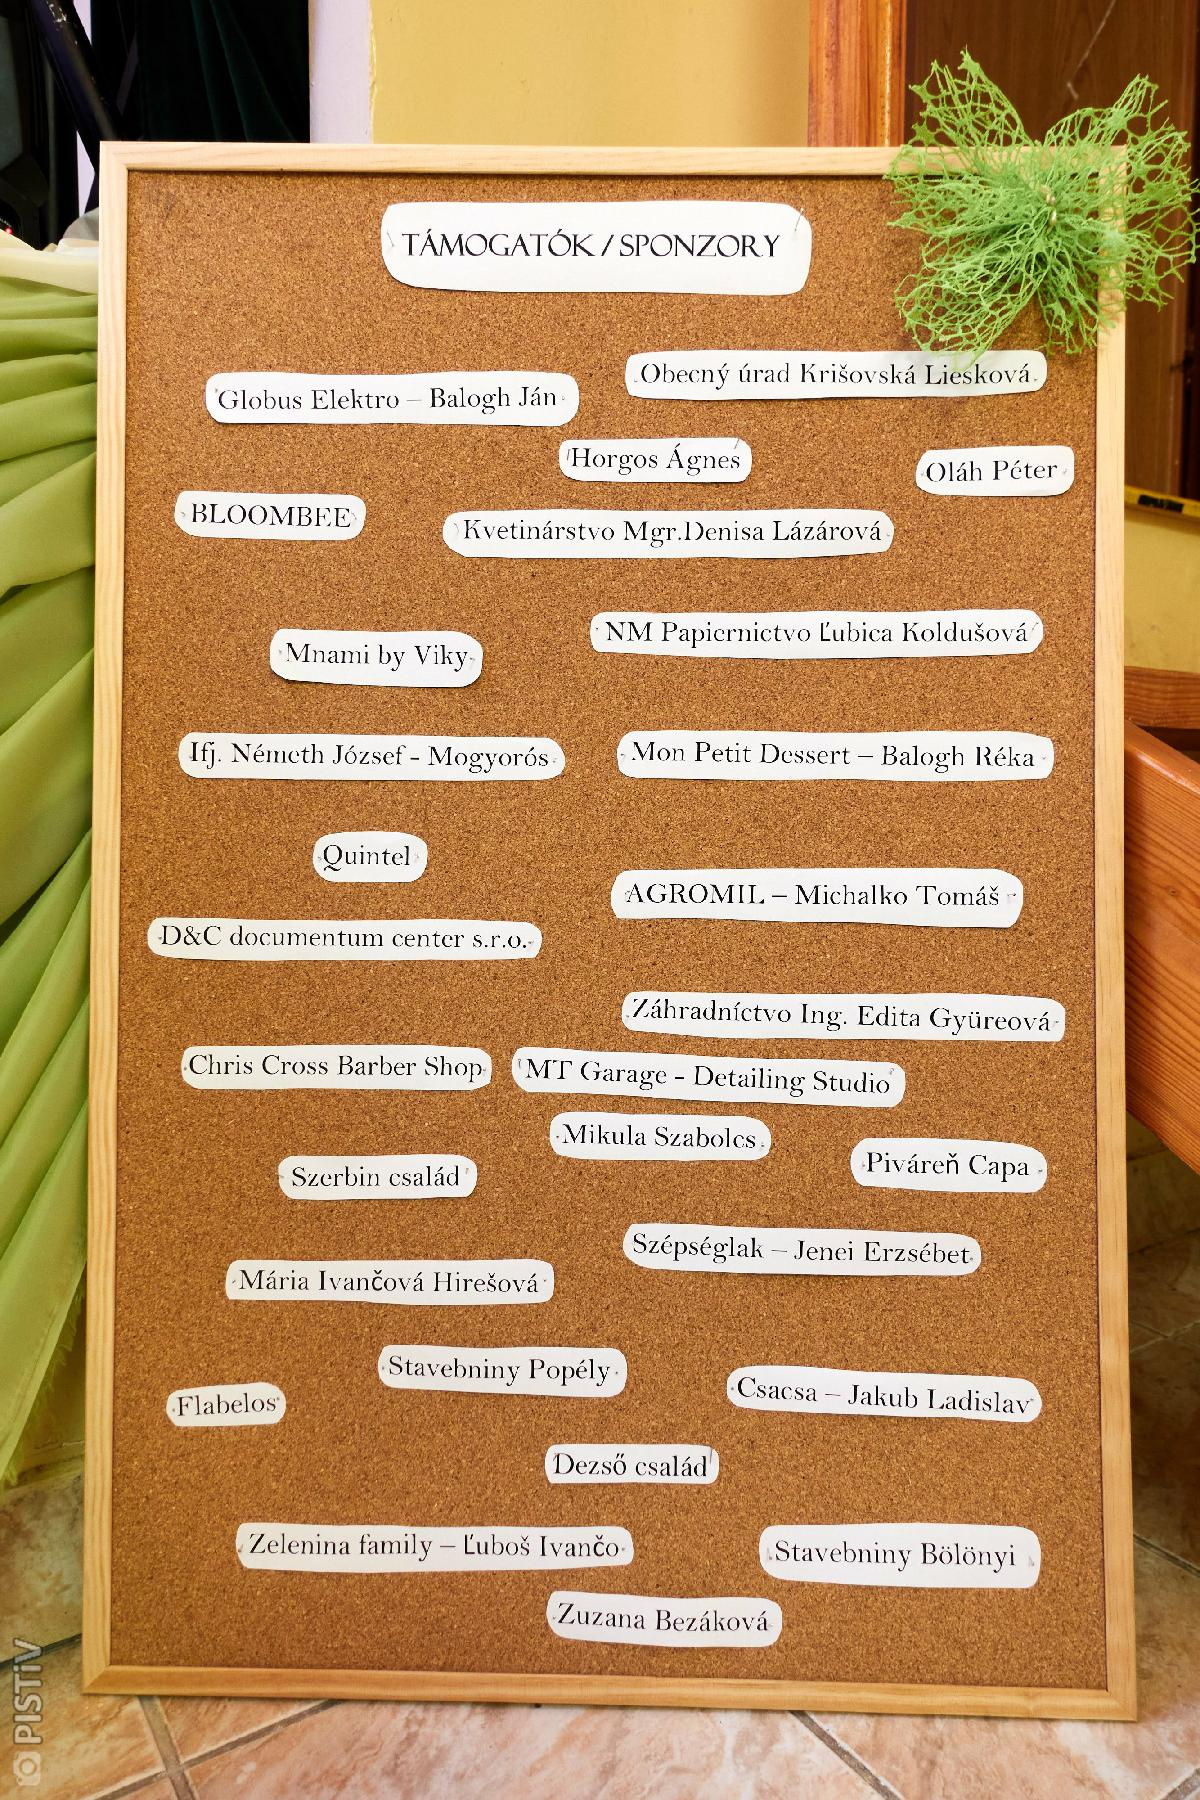 TÁMOGATÓK / SPONZORY
Obecný úrad Krišovská Liesková
Globus Elektro – Balogh Ján
Horgos Ágnes
Oláh Péter
BLOOMBEE
Kvetinárstvo Mgr.Denisa Lázárová
NM Papiernictvo Ľubica Koldušová
Mnami by Viky
Ifj. Németh József - Mogyorós
Mon Petit Dessert – Balogh Réka
Quintel
AGROMIL – Michalko Tomáš
D&C documentum center s.r.o.
Záhradníctvo Ing. Edita Gyüreová
Chris Cross Barber Shop
MT Garage - Detailing Studio
Mikula Szabolcs
Piváreň Capa
Szerbin család
Szépséglak – Jenei Erzsébet
Mária Ivančová Hirešová
Stavebniny Popély
Csacsa – Jakub Ladislav
Flabelos
Dezső család
Zelenina family – Ľuboš Ivančo
Stavebniny Bölönyi
Zuzana Bezáková
PISTiV